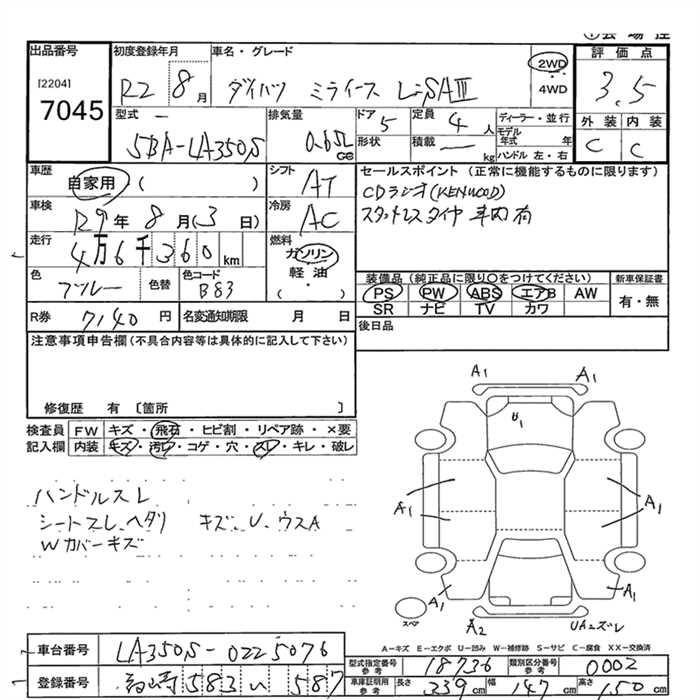 出品番号
[2204]
7045
初度登録年月
R2 8月
車名・グレード
ダイハツ ミライース L-SAⅢ
2WD
4WD
評価点
3.5
外装 内装
C C
型式
5BA-LA350S
排気量
0.65L
cc
ドア 5
形状
定員 4 人
積載 — kg
ディーラー・並行
モデル年式 年
ハンドル 左・右
車歴
自家用 ( )
シフト
AT
車検
R9年 8月(3日)
冷房
AC
走行
4万6千360km
燃料
ガソリン
軽油
( ・ )
色
ブルー
色替
色コード
B83
R券
7140円
名変通知期限 月 日
セールスポイント (正常に機能するものに限ります)
CDラジオ(KENWOOD)
スタッドレスタイヤ車内有
装備品 (純正品に限り○をつけてください)
PS PW ABS エアB AW
SR ナビ TV カワ
新車保証書
有・無
後日品
注意事項申告欄(不具合内容等は具体的に記入して下さい)
修復歴 有 〔箇所 〕
検査員記入欄
FW キズ・飛石・ヒビ割・リペア跡・×要
内装 キズ・汚レ・コゲ・穴・スレ・キレ・破レ
ハンドルスレ
シートスレ、ヘタリ キズ、U、ウスA
Wカバーキズ
A1 A1
U1
A1 A1
A1 A1
スペア
A2 UAニズレ
A-キズ E-エクボ U-凹み W-補修跡 S-サビ C-腐食 XX-交換済
車台番号 LA350S-0225076
登録番号 583 い 587
型式指定番号 参考 18736
類別区分番号 参考 0002
車庫証明用 参考 長さ 339cm 幅 147cm 高さ 150cm